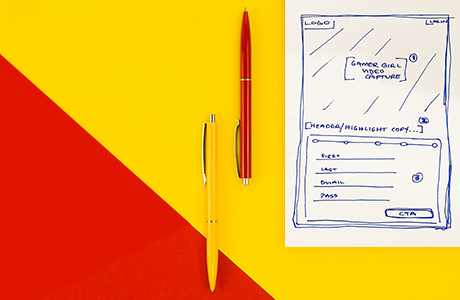 LOGO
LOGIN
1
[GAMER GIRL
VIDEO
CAPTURE]
2
[HEADER/HIGHLIGHT COPY...]
FIRST
LAST
EMAIL
3
PASS
CTA